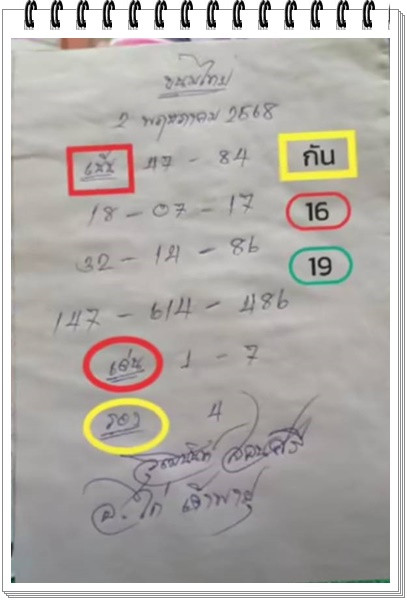 ขนมไทย
2 พฤษภาคม 2568
เน้น 47 - 84
กัน
18 - 07 - 17
16
32 - 14 - 86
19
147 - 614 - 486
เด่น 1 - 7
รอง 4
อ. ไก่ เจ้าพายุ